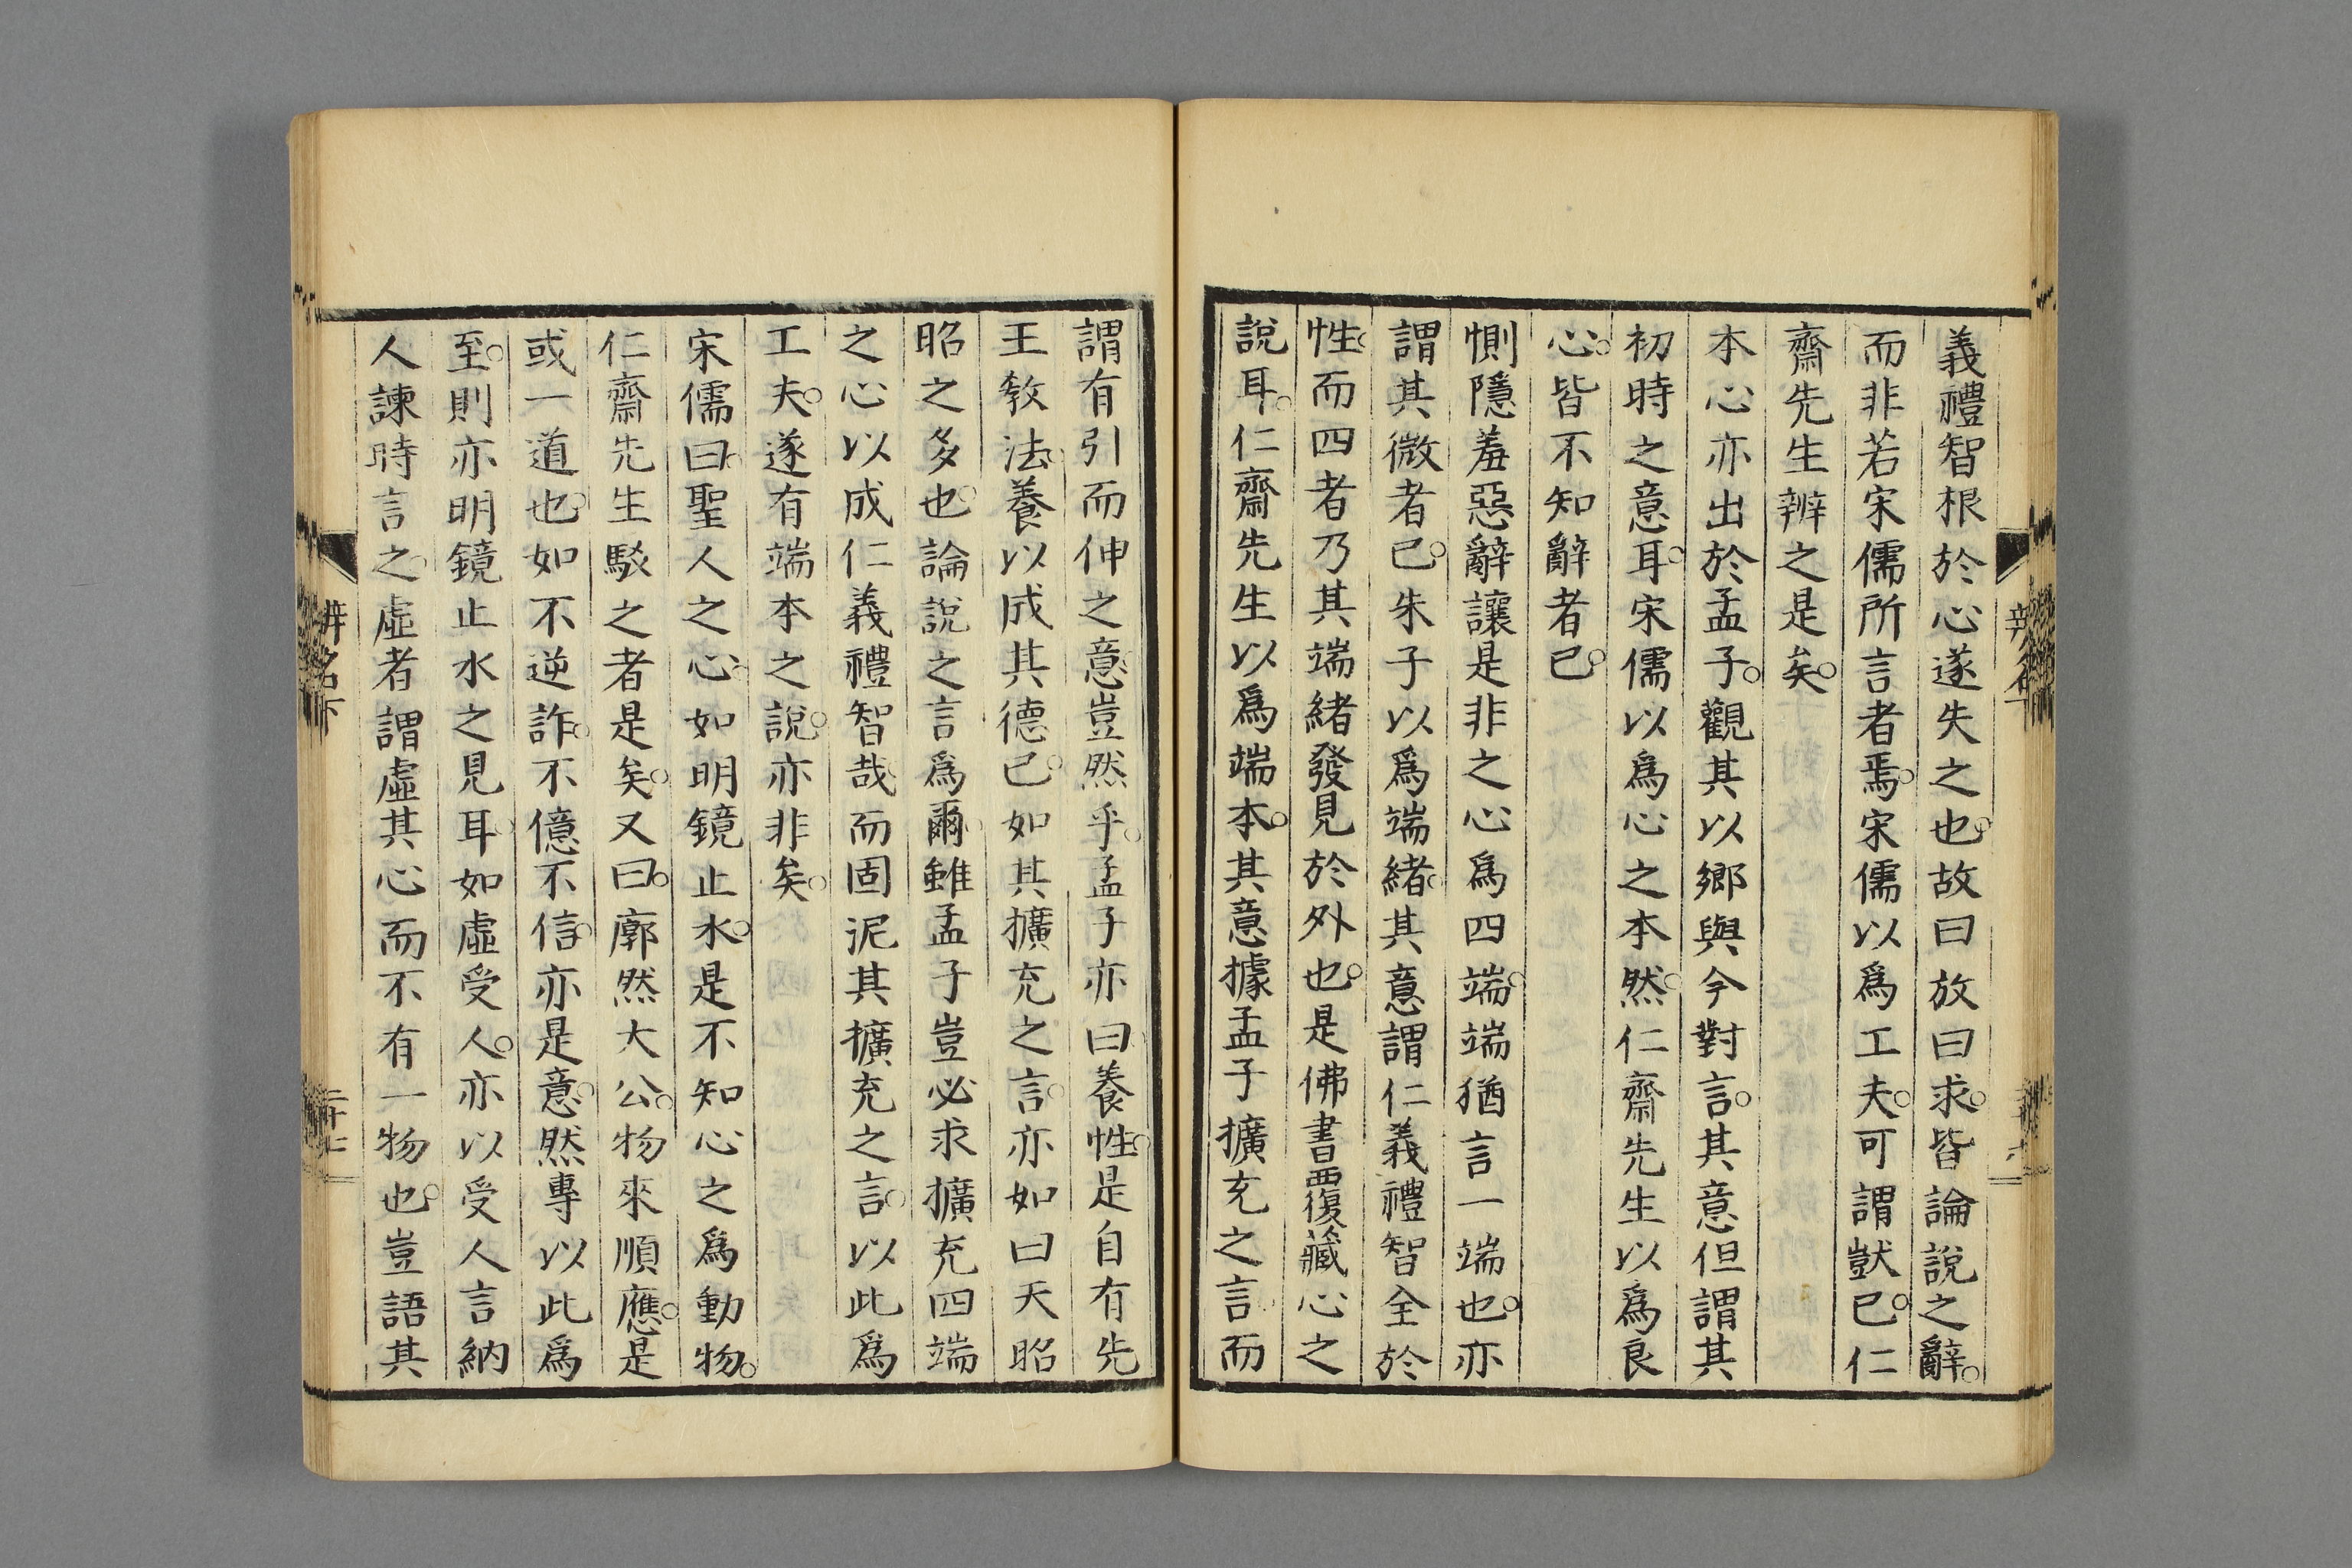 義禮智根於心遂失之也。故曰放曰求。皆論說之辭。
而非若宋儒所言者焉。宋儒以爲工夫。可謂獃已。仁
齋先生辨之是矣。
本心亦出於孟子。觀其以鄉與今對言。其意但謂其
初時之意耳。宋儒以爲心之本然。仁齋先生以爲良
心。皆不知辭者已。
惻隱羞惡辭讓是非之心爲四端。端猶言一端也。亦
謂其微者已。朱子以爲端緒。其意謂仁義禮智全於
性。而四者乃其端緒發見於外也。是佛書覆藏心之
說耳。仁齋先生以爲端本。其意據孟子擴充之言。而
謂有引而伸之意。豈然乎。孟子亦曰。養性。是自有先
王敎法。養以成其德已。如其擴充之言。亦如曰天昭
昭之多也。論說之言爲爾。雖孟子豈必求擴充四端
之心以成仁義禮智哉。而固泥其擴充之言。以此爲
工夫。遂有端本之說。亦非矣。
宋儒曰。聖人之心。如明鏡止水。是不知心之爲動物。
仁齋先生駁之者是矣。又曰。廓然大公。物來順應。是
或一道也。如不逆詐。不億不信。亦是意。然專以此爲
至。則亦明鏡止水之見耳。如虛受人。亦以受人言納
人諫時言之。虛者謂虛其心而不有一物也。豈語其
辨名下
二十七